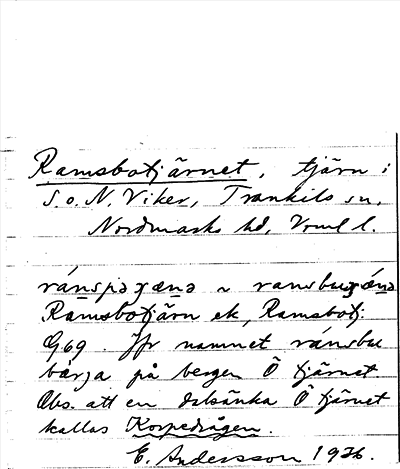 Ramsbotjärnet, tjärn i
S. o. N. Viker, Trankils sn,
Nordmarks hd, Vrml l.
ránspəɣænə ~ ransbuɣǽnə
Ramsbotjärn ek, Ramsbotj.
G69. Jfr namnet ránsbu
bærja på bergen Ö tjärnet
Obs. att en dalsänka Ö tjärnet
kallas Korpedrågen.
E. Andersson 1926.